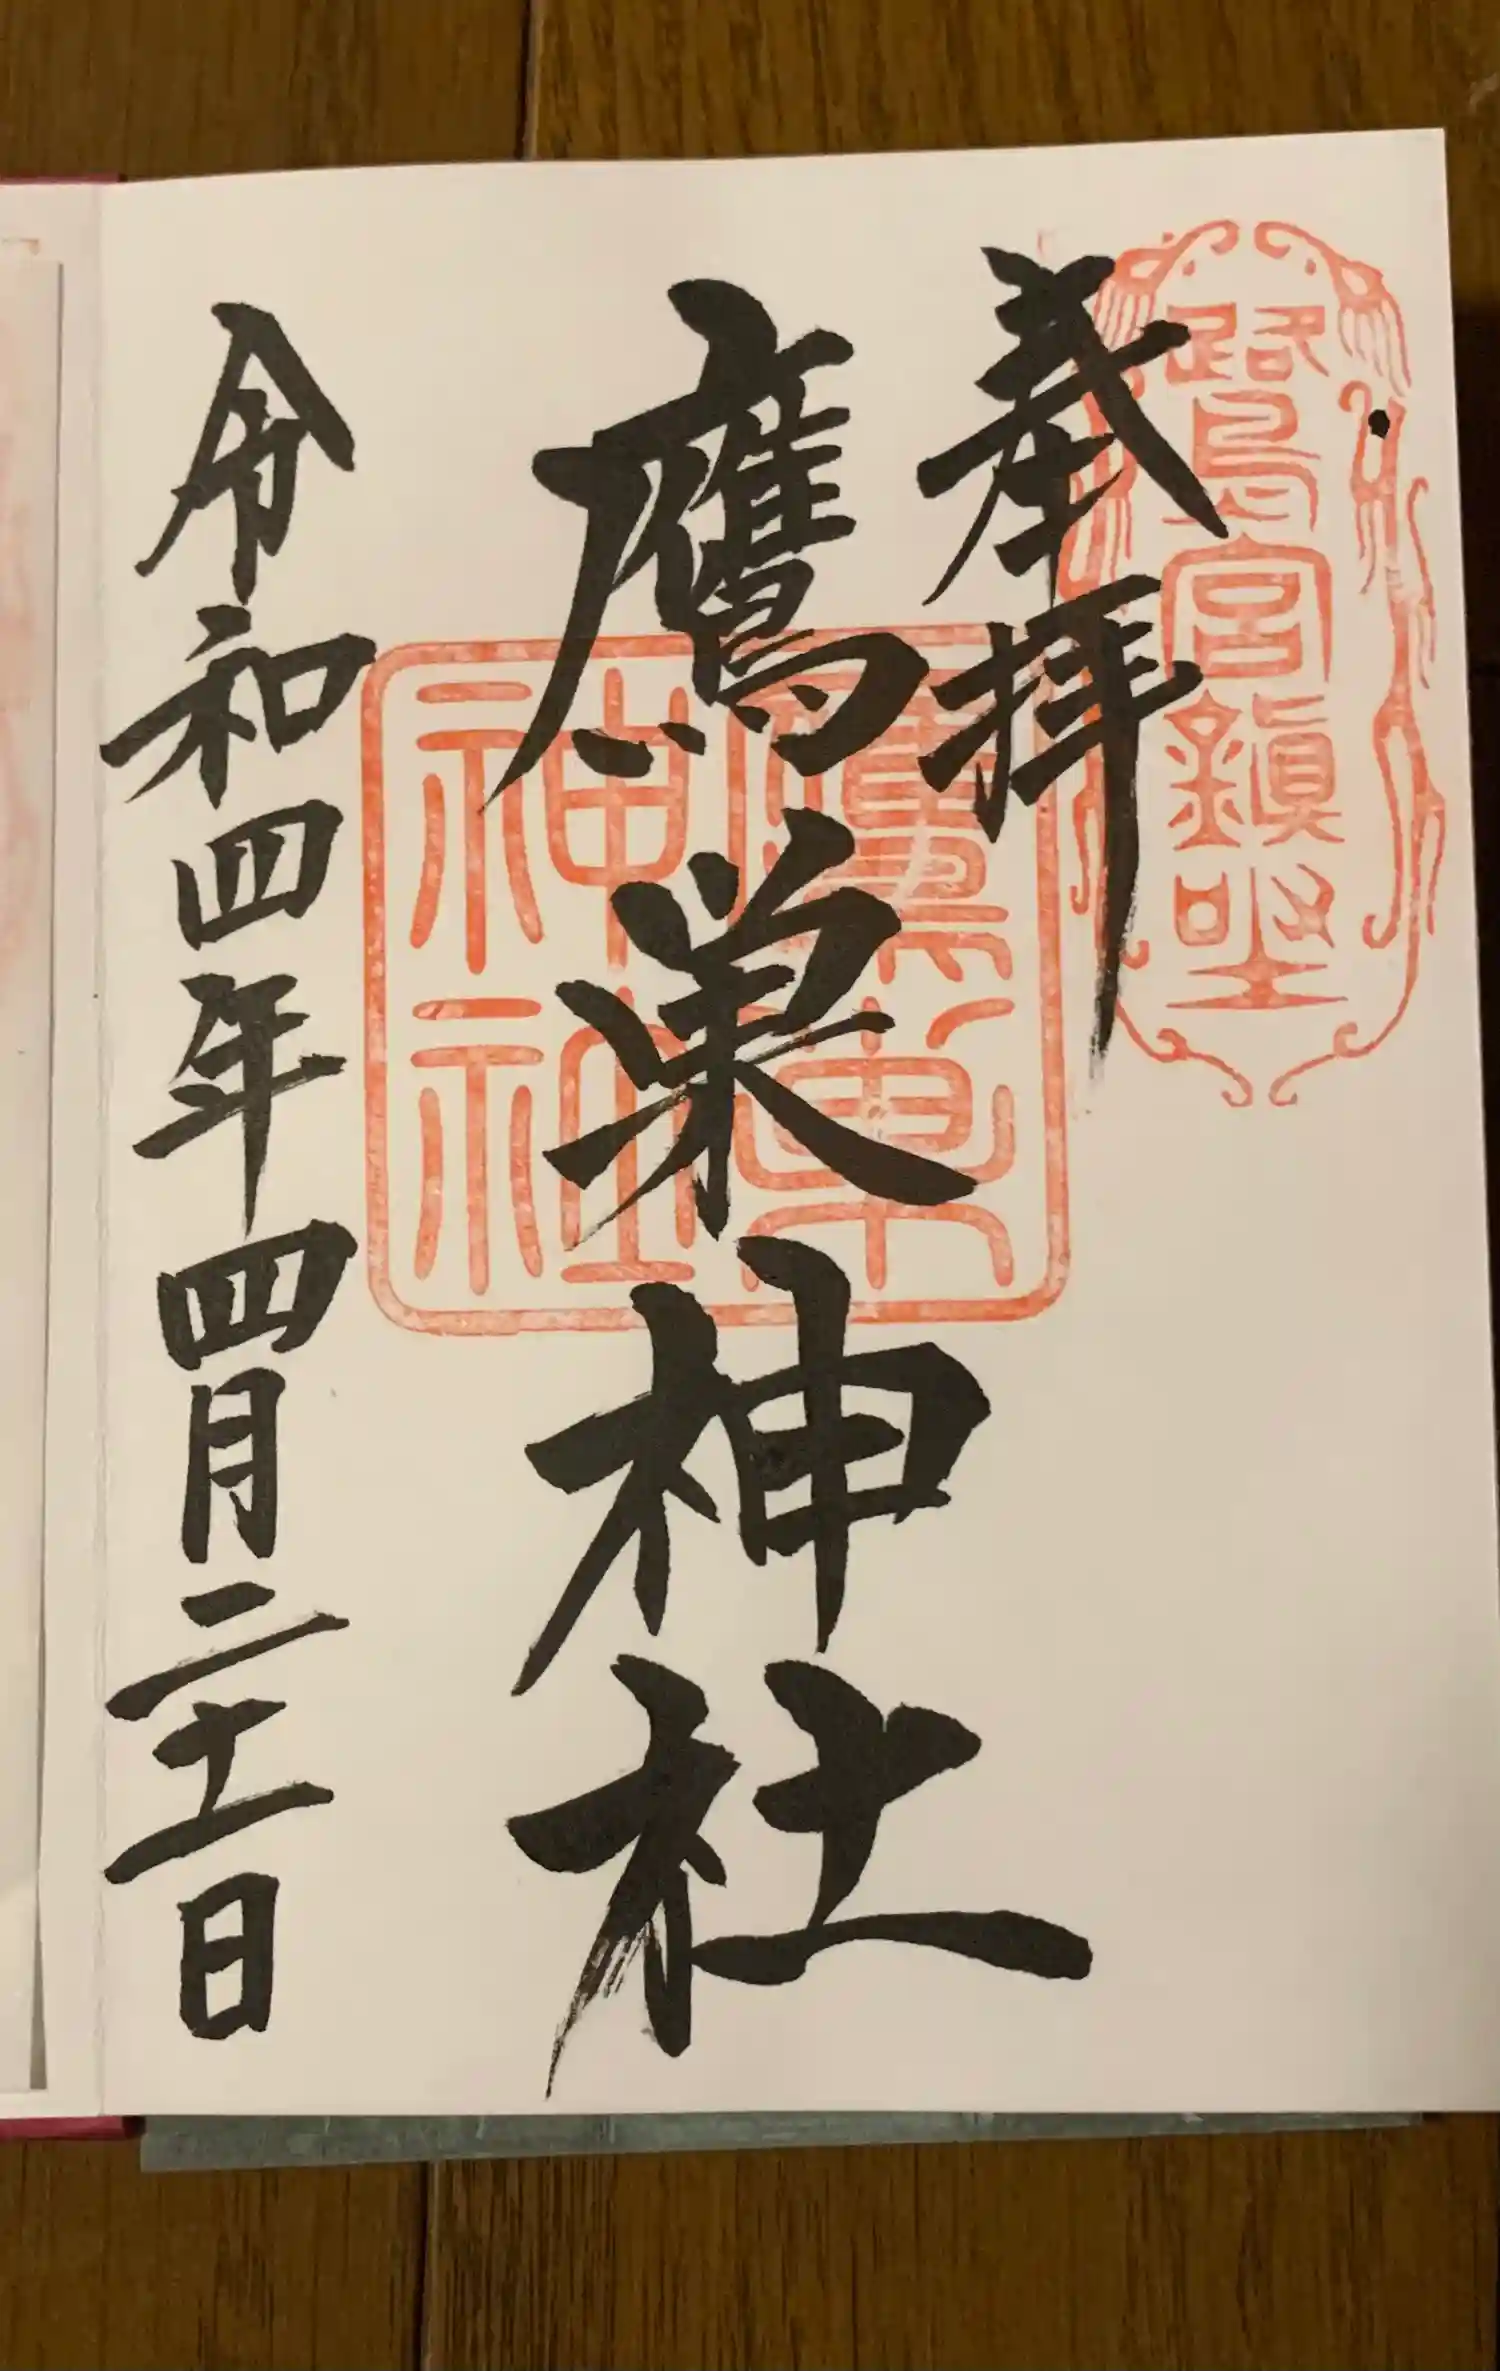 鷺宮鎭坐
奉拝
鷹巣神社
鷹巣神社
令和四年四月二十一日